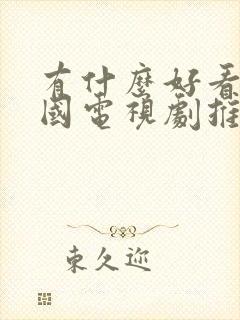 有什麼好看
國電視劇推
東久迩